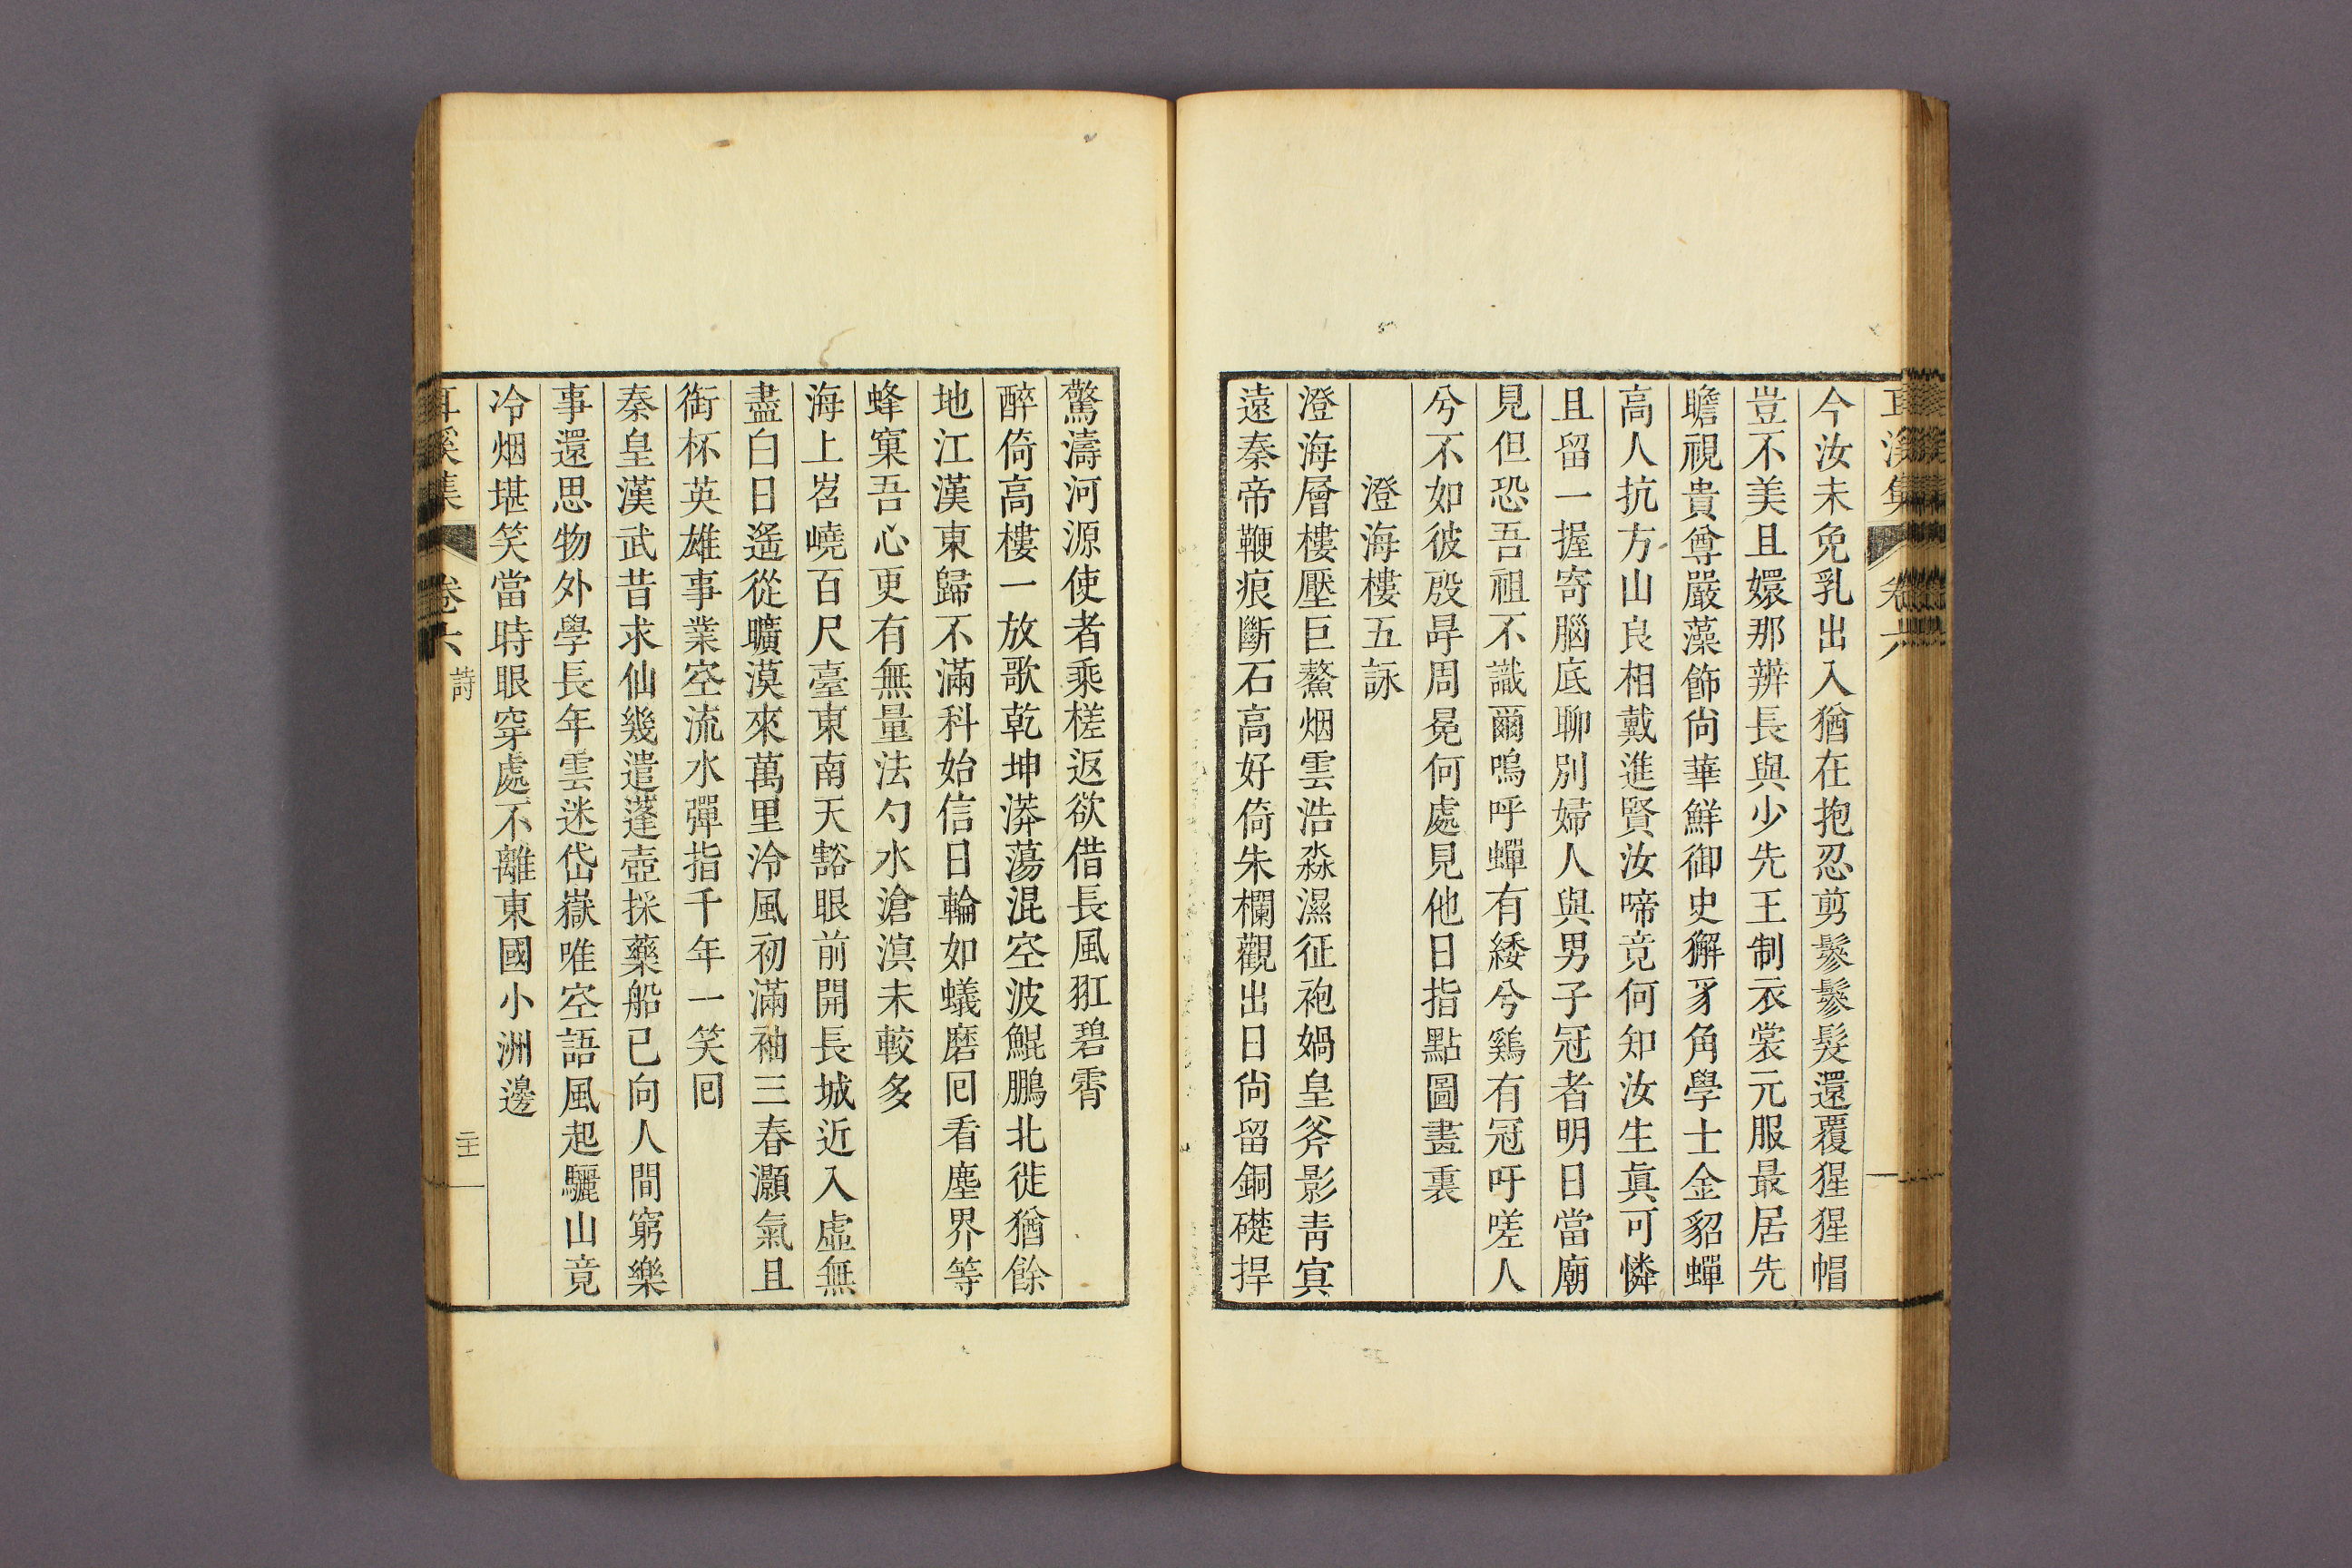 耳溪集 卷六
今汝未免乳出入猶在抱忍剪鬖鬖髮還覆猩猩帽
豈不美且嬛那辨長與少先王制衣裳元服最居先
瞻視貴尊嚴藻飾尙華鮮御史獬豸角學士金貂蟬
高人抗方山良相戴進賢汝啼竟何知汝生眞可憐
且留一握寄腦底聊別婦人與男子冠者明日當廟
見但恐吾祖不識爾嗚呼蟬有緌兮鷄有冠吁嗟人
兮不如彼殷冔周冕何處見他日指點圖畫裏
澄海樓五詠
澄海層樓壓巨鰲烟雲浩淼濕征袍媧皇斧影靑冥
遠秦帝鞭痕斷石高好倚朱欄觀出日尙留銅礎捍
驚濤河源使者乘槎返欲借長風羾碧霄
醉倚高樓一放歌乾坤漭蕩混空波鯤鵬北徙猶餘
地江漢東歸不滿科始信日輪如蟻磨回看塵界等
蜂窠吾心更有無量法勺水滄溟未較多
海上岧嶢百尺臺東南天豁眼前開長城近入虛無
盡白日遙從曠漠來萬里泠風初滿袖三春灝氣且
銜杯英雄事業空流水彈指千年一笑回
秦皇漢武昔求仙幾遣蓬壺採藥船已向人間窮樂
事還思物外學長年雲迷岱嶽唯空語風起驪山竟
冷烟堪笑當時眼穿處不離東國小洲邊
耳溪集 卷六 詩 二十一